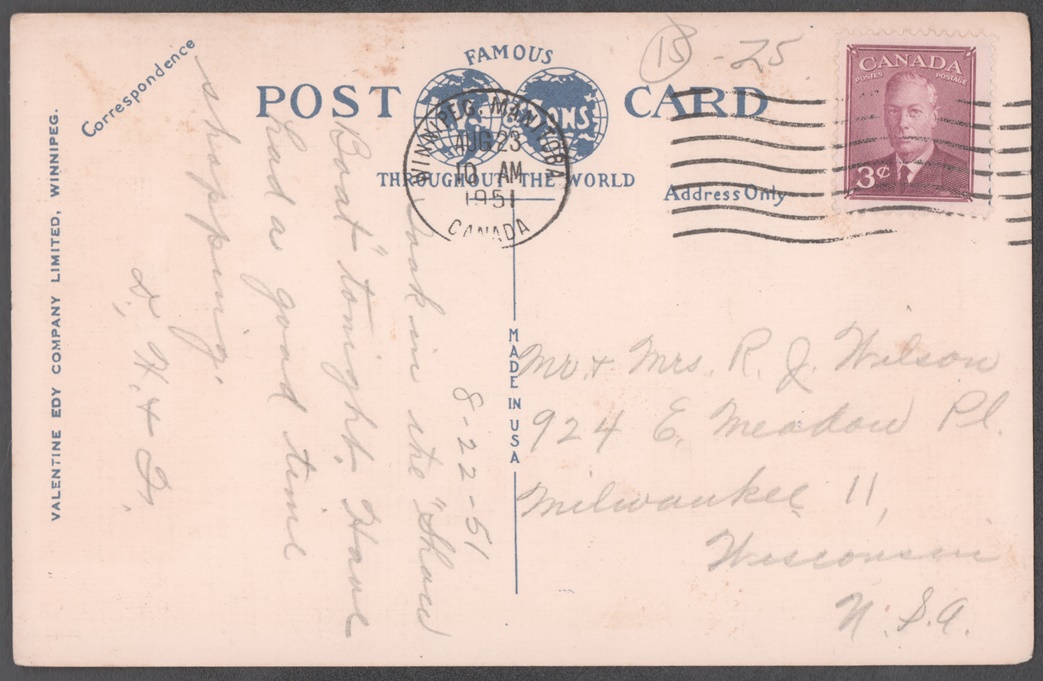 VALENTINE EDY COMPANY LIMITED, WINNIPEG.
Correspondence
FAMOUS
POST CARD
THROUGHOUT THE WORLD
Address Only
MADE IN USA
WINNIPEG MANITOBA
AUG 23
10 AM
1951
CANADA
CANADA
POSTES POSTAGE
3¢
15 - 25
8-22-51
Took in the "Show
Boat" tonight. Have
had a good time
shopping.
D, H. & D.
Mr. & Mrs. R. J. Wilson
924 E. Meadow Pl.
Milwaukee 11,
Wisconsin
U.S.A.